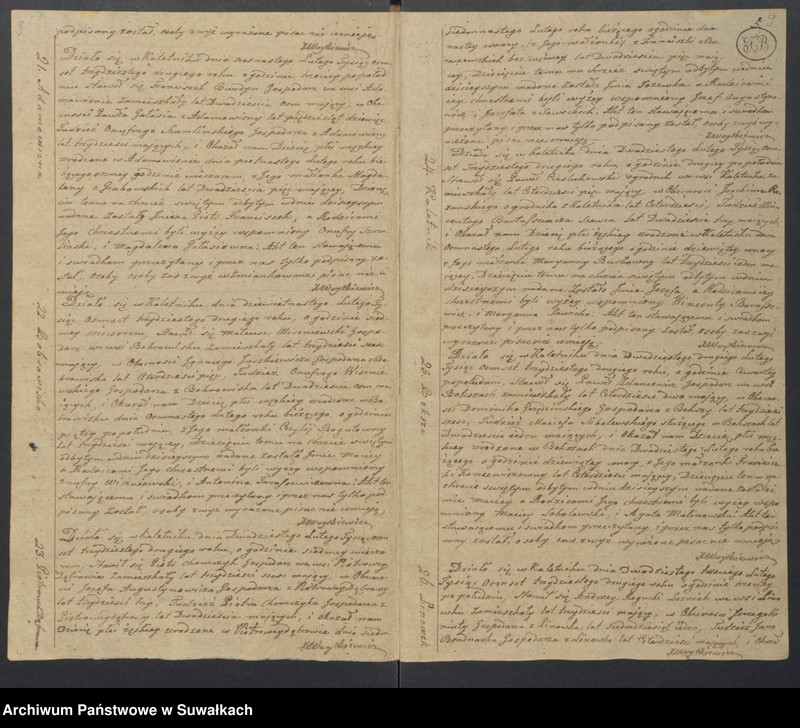 podpisany został, osoby zwyż wyrażone pisać nie umieją
XWoytkiewicz
21. Adamowizna
Działo się w Kaletniku dnia szesnastego Lutego Tysiąc osm
set trzydziestego drugiego roku o godzinie trzeciey popołud
niu stawił się Franciszek Bundyn Gospodarz we wsi Ada
mowiznie zamieszkały lat Dwadzieścia osm mający, w Obe
cności Pawła Galasia z Adamowizny lat pięćdziesiąt dziewięć
tudzież Onufrego Szumlinskiego Gospodarza z Adamowizny
lat trzydzieści mających, i Okazał nam Dziecię płci męzkiey
urodzone w Adamowiznie dnia piętnastego Lutego roku bie
żącego o godzinie wieczorem, z Jego małżonki Magda
leny z Grabowskich lat Dwadzieścia pięć mającey, Dziecię
ciu temu na chrzcie świętym odbytym w dniu dzisieyszym
nadane zostały Imiona Piotr Franciszek, a Rodzicami
Jego chrzestnemi byli wyżey wspomniony Onufry Szum
linski, i Magdalena Galasiowna: Akt ten stawającemu
i świadkom przeczytany i przez nas tylko podpisany zo
stał, Osoby zaś zwyż wzmiankowane pisać nie u
mieją
XWoytkiewicz
22. Bobrowisko
Działo się w Kaletniku dnia dziewiętnastego Lutego Ty
siąc Osmset trzydziestego drugiego roku, o godzinie siod
mey wieczorem, Stawił się Mateusz Wisniewski Gospo
darz we wsi Bobrowisku zamieszkały lat trzydzieści sześć
mający, w Obecności Ignacego Jaszkiewicza Gospodarza z Bo
browiska lat Czterdzieści pięć, Tudzież Onufrego Wisniew
skiego Gospodarza z Bobrowiska lat Dwadzieścia osm ma
jących, i Okazał nam Dziecię płci męzkiey urodzone w Bo
browisku dnia Osmnastego Lutego roku bieżącego, o godzinie
piątey popołudniu, z Jego małżonki Cecylij
lat trzydzieści mającey, Dziecięciu temu na chrzcie świętym
odbytym w dniu dzisieyszym nadane zostało Imie Maciey
a Rodzicami Jego chrzestnemi byli wyżey wspomniony
Onufry Wisniewski, i Antonina Tarasiewiczowna: Akt ten
stawającemu i świadkom przeczytany i przez nas tylko pod
pisany został, osoby zwyż wyrażone pisać nie umieją
XWoytkiewicz
23. Piotrowa Dąbrowa
Działo się w Kaletniku dnia Dwudziestego Lutego Tysiąc osm
set trzydziestego drugiego roku, o godzinie siodmey wieczo
rem, Stawił się Piotr Chomczyk Gospodarz we wsi Piotrowey
Dąbrowie zamieszkały lat trzydzieści sześć mający, w Obecno
ści Jozefa Augustynowicza Gospodarza z Piotrowey Dąbrowy
lat trzydzieści trzy, Tudzież Piotra Chomczyka Gospodarza z
Piotrowey Dąbrowy lat Dwadzieścia mających, i Okazał nam
Dziecię płci żęńskiey urodzone w Piotrowey Dąbrowie dnia siedm
XWoytkiewicz
siedmnastego Lutego roku bieżącego o godzinie dwu
nastey z Jego małżonki Franciszki
lat Dwadzieścia pięć mają
cey, Dziecięciu temu na chrzcie świętym odbytym w dniu
dzisieyszym nadane zostało Imie Jozefa a Rodzicami
iey chrzestnemi byli wyżey wspomniony Jozef Augustyno
wicz i Jozefata Sawickich. Akt ten stawającemu i świadkom
przeczytany i przez nas tylko podpisany został, osoby zwyż wy
rażone pisać nie umieją
XWoytkiewicz
24. Kaletnik
Działo się w Kaletniku dnia Dwudziestego Lutego Tysiąc Osm
set Trzydziestego drugiego roku, o godzinie drugiey popołudniu
Stawił się Paweł Ogrodnik we wsi Kaletniku za
mieszkały lat Czterdzieści pięć mający, w Obecności Joachima
ogrodnika z Kaletnika lat Czterdzieści, Tudzież Win
centego Szewca lat Dwadzieścia mających
i Okazał nam Dziecię płci żęńskiey urodzone w Kaletniku dnia
Osmnastego Lutego roku bieżącego o godzinie dziewiątey
z Jego małżonki Maryanny lat trzydzieści ieden ma
jącey, Dziecięciu temu na chrzcie świętym odbytym w dniu
dzisieyszym nadane zostało Imie Jozefa, a Rodzicami iey
chrzestnemi byli wyżey wspomniony Wincenty
i Maryanna Akt ten stawającemu i świadkom
przeczytany i przez nas tylko podpisany został osoby zaś zwyż
wyrażone pisać nie umieją
XWoytkiewicz
25. Boksze
Działo się w Kaletniku dnia Dwudziestego drugiego Lutego
Tysiąc osmset trzydziestego drugiego roku, o godzinie czwartey
popołudniu, Stawił się Paweł Zdancewicz Gospodarz we wsi
Bokszach zamieszkały lat Czterdzieści dwa mający, w Obecno
ści Dominika Gospodarza z Bokszy lat trzydzieści
sześć, Tudzież Macieja Sobolewskiego służącego w Bokszach lat
Dwadzieścia siedm mających, i Okazał nam Dziecię płci męz
kiey urodzone w Bokszach dnia Dwudziestego Lutego roku bie
żącego o godzinie dziewiątey z Jego małżonki Franciszki
lat Czterdzieści mającey, Dziecięciu temu na
chrzcie świętym odbytym w dniu dzisieyszym nadane zostało I
mie Maciey a Rodzicami Jego chrzestnemi byli wyżey wspo
mniony Maciey Sobolewski, i Agata Malinowska: Akt ten
stawającemu i świadkom przeczytany, i przez nas tylko podpisa
ny został osoby zaś zwyż wyrażone pisać nie umieją
XWoytkiewicz
26. Lipowek
Działo się w Kaletniku dnia Dwudziestego trzeciego Lutego
Tysiąc Osmset trzydziestego drugiego roku o godzinie trzeciey
popołudniu, Stawił się Andrzey Rogucki Leśnik we wsi Lipow
ku zamieszkały lat trzydzieści mający, w Obecności Jerzego
Gospodarza z Lipowka lat Siedmdziesiąt ieden, Tudzież Jana
Bednarka Gospodarza z Lipowka lat Czterdzieści mających, i Okazał
XWoytkiewicz
Archiwum Państwowe w Suwałkach